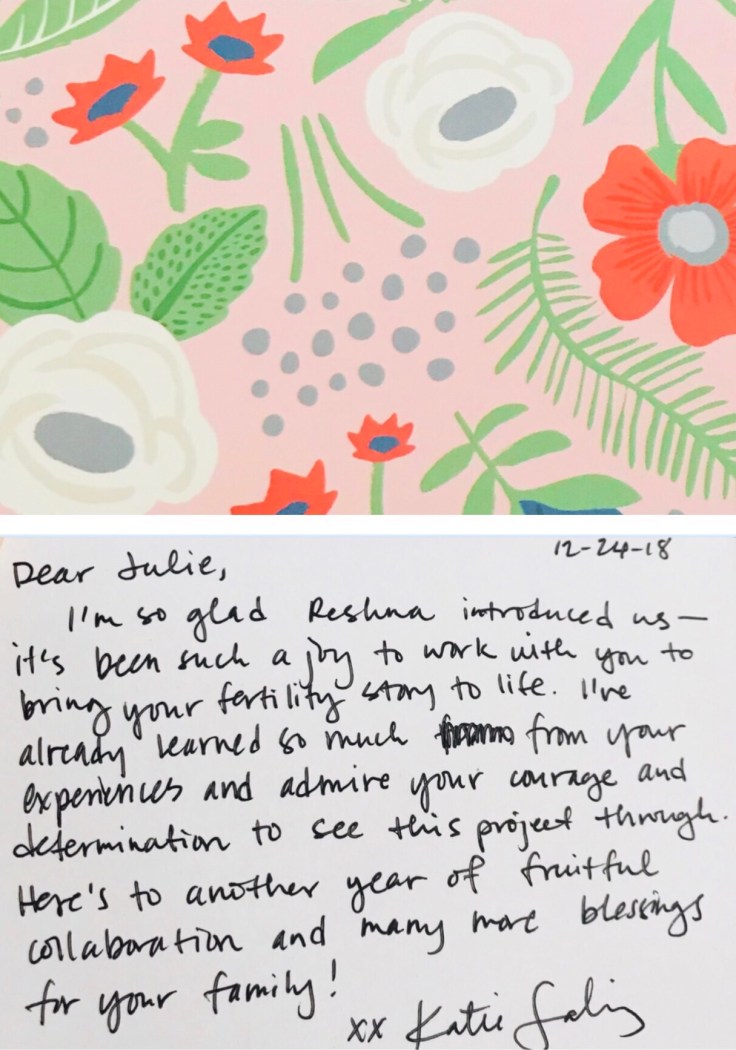 12-24-18
Dear Julie,
I'm so glad Reshna introduced us—
it's been such a joy to work with you to
bring your fertility story to life. I've
already learned so much from your
experiences and admire your courage and
determination to see this project through.
Here's to another year of fruitful
collaboration and many more blessings
for your family!
xx Katie